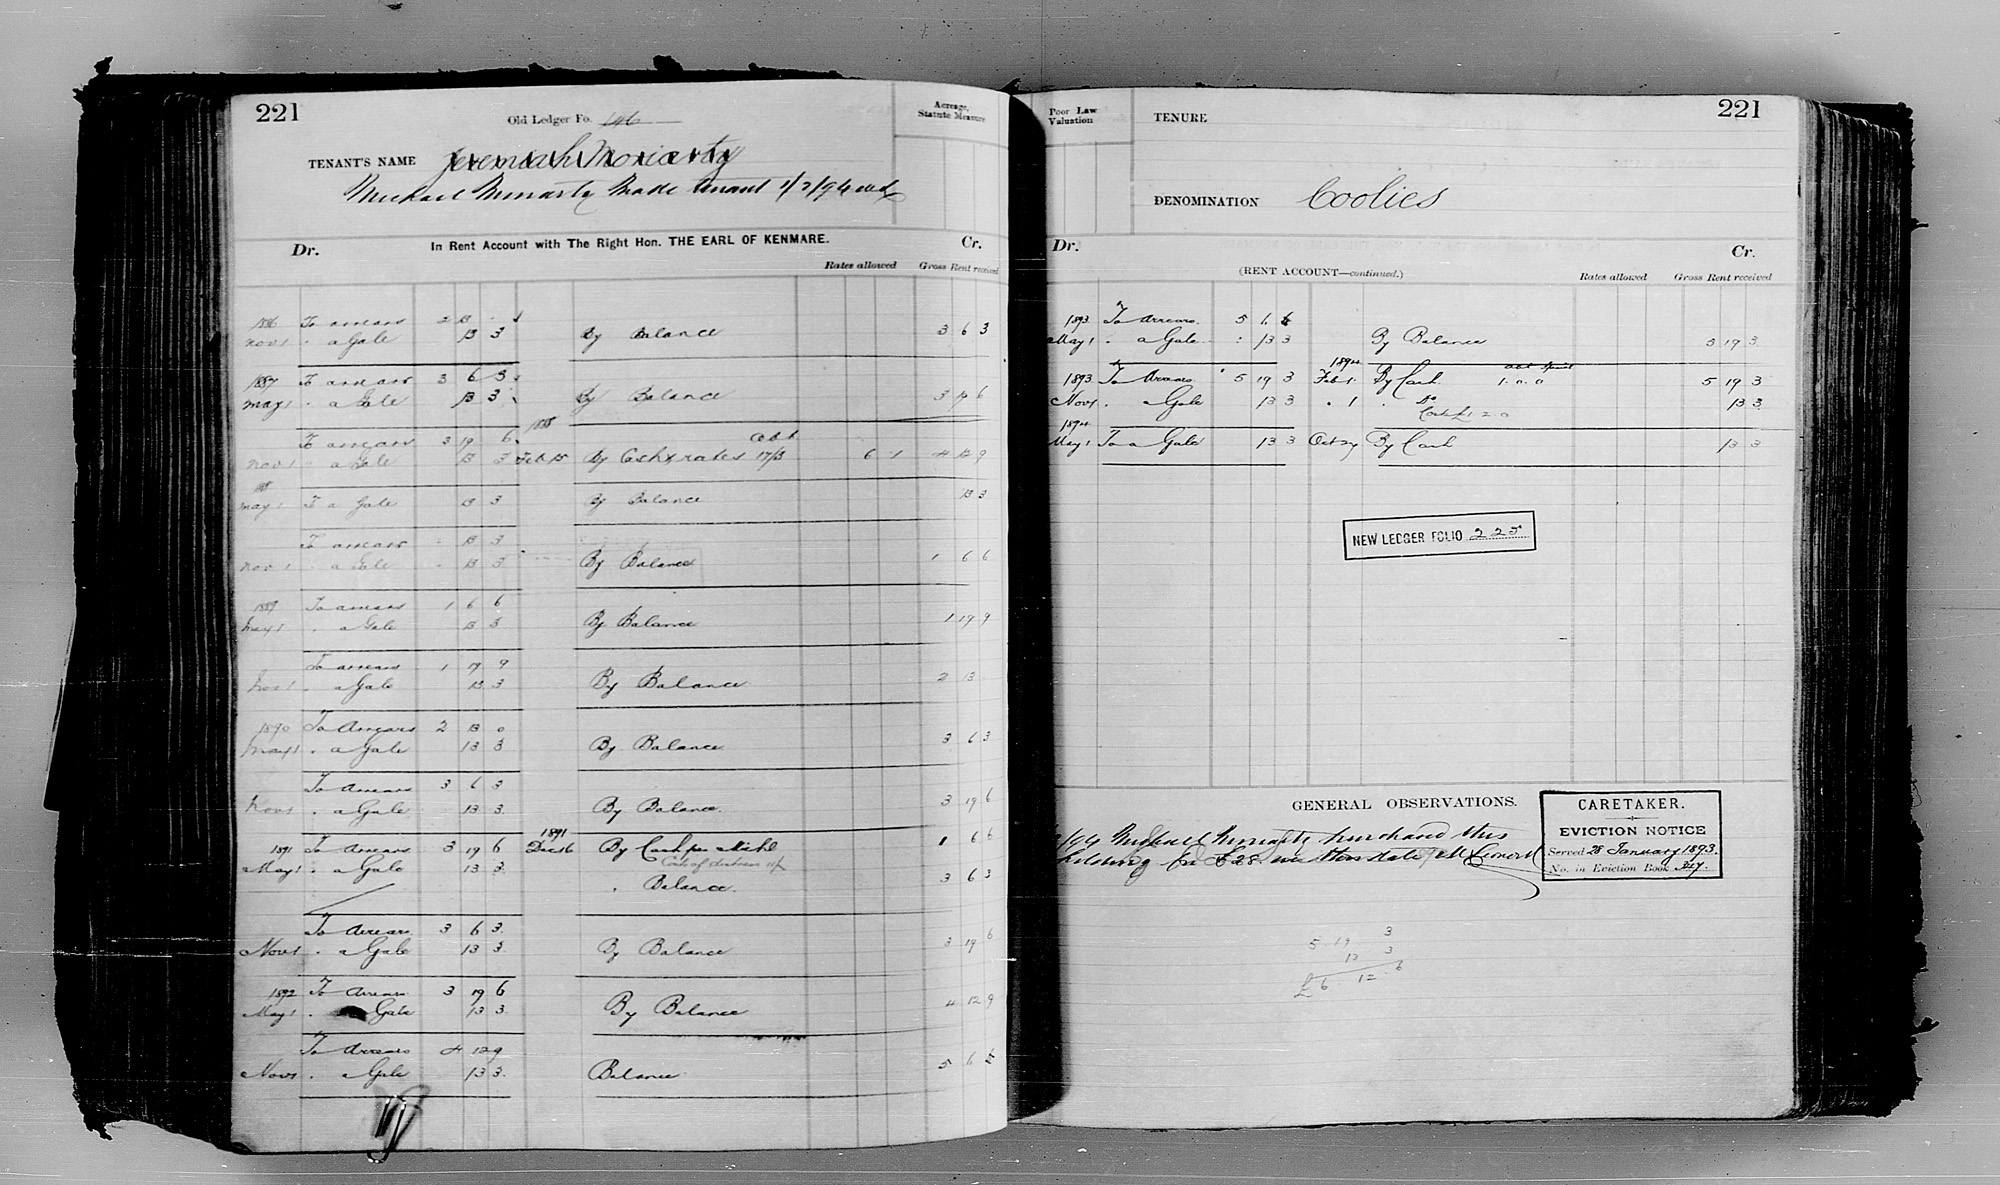 221
Old Ledger Fo. 146
Acreage,
Statute Measure
TENANT'S NAME Jeremiah Moriarty
Michael Moriarty Made tenant 1/2/94
In Rent Account with The Right Hon. THE EARL OF KENMARE.
Dr. Cr.
Rates allowed Gross Rent received
1886 To arrears 2 13 .
Nov 1 . a Gale 13 3 By Balance 3 6 3
1887 To arrears 3 6 3
May 1 . a Gale 13 3 By Balance 3 19 6
To arrears 3 19 6
Nov 1 . a Gale 13 3 Feb 15 By Cash & rates 17/3 6 1 4 12 9
May 1 To a Gale 13 3 By Balance 13 3
To arrears 13 3
Nov 1 . a Gale 13 3 By Balance 1 6 6
1889 To arrears 1 6 6
May 1 . a Gale 13 3 By Balance 1 19 9
To arrears 1 19 9
Nov 1 . a Gale 13 3 By Balance 2 13
1890 To Arrears 2 13 0
May 1 . a Gale 13 3 By Balance 3 6 3
To Arrears 3 6 3
Nov 1 . a Gale 13 3 By Balance. 3 19 6
1891
1891 To Arrears 3 19 6 Dec 16 By Cash per Michl 1 6 6
May 1 . a Gale 13 3
. Balance. 3 6 3
To Arrears 3 6 3
Nov 1 . a Gale 13 3 By Balance 3 19 6
1892 To Arrears 3 19 6
May 1 . Gale 13 3 By Balance 4 12 9
To Arrears 4 12 9
Nov 1 . a Gale 13 3 Balance 5 6
221
Poor Law
Valuation
TENURE
DENOMINATION Coolies
Dr. Cr.
(RENT ACCOUNT—continued.)
Rates allowed Gross Rent received
1893 To Arrears. 5 6
May 1 . a Gale 13 3 By Balance 5 19 3
1894
1893 To Arrears 5 19 3 Feb 1 By Cash 1. 0. 0 5 19 3
Nov 1 . a Gale 13 3 . 1 . Do 13 3
1894
May 1 To a Gale 13 3 Oct 27 By Cash 13 3
NEW LEDGER FOLIO 225
GENERAL OBSERVATIONS.
Michael Moriarty purchased this
holding for £28.
CARETAKER.
EVICTION NOTICE
Served 28 January 1893.
No. in Eviction Book
5 19 3
13 3
£6 12 6